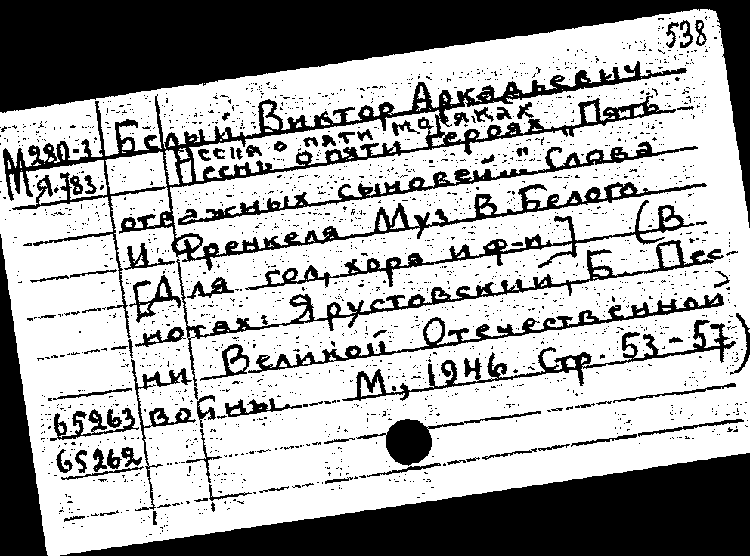 538
Белый, Виктор Аркадьевич.
М 280-3
Песня о пяти моряках
М Я.783.
Песнь о пяти героях. "Пять
отважных сыновей..." Слова
И. Френкеля Муз В. Белого.
[Для гол, хора и ф-п.] (В
нотах: Ярустовский, Б. Пес
ни Великой Отечественной
65263 войны. М., 1946. Стр. 53-57)
65262